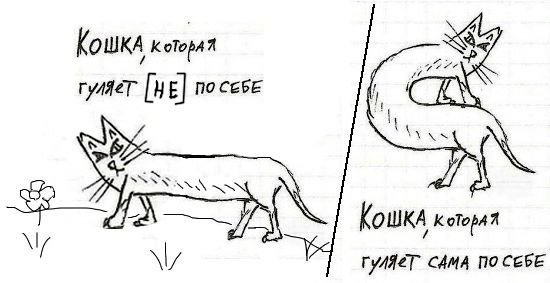 КОШКА, которая
гуляет [НЕ] ПО СЕБЕ
КОШКА, которая
гуляет САМА ПО СЕБЕ